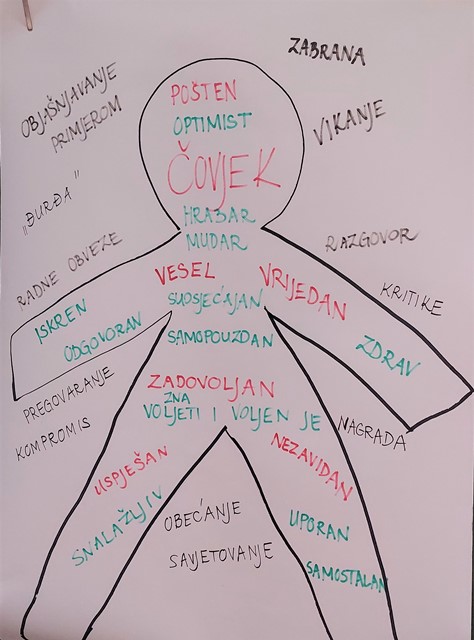 ZABRANA
OBJAŠNJAVANJE
PRIMJEROM
POŠTEN
OPTIMIST
VIKANJE
ČOVJEK
„ĐURĐA"
HRABAR
MUDAR
RAZGOVOR
RADNE OBVEZE
VESEL
VRIJEDAN
KRITIKE
SUOSJEĆAJAN
ISKREN
ODGOVORAN
SAMOPOUZDAN
ZDRAV
PREGOVARANJE
ZADOVOLJAN
ZNA
VOLJETI I VOLJEN JE
KOMPROMIS
NAGRADA
USPJEŠAN
NEZAVIDAN
SNALAŽLJIV
OBEĆANJE
UPORAN
SAVJETOVANJE
SAMOSTALAN